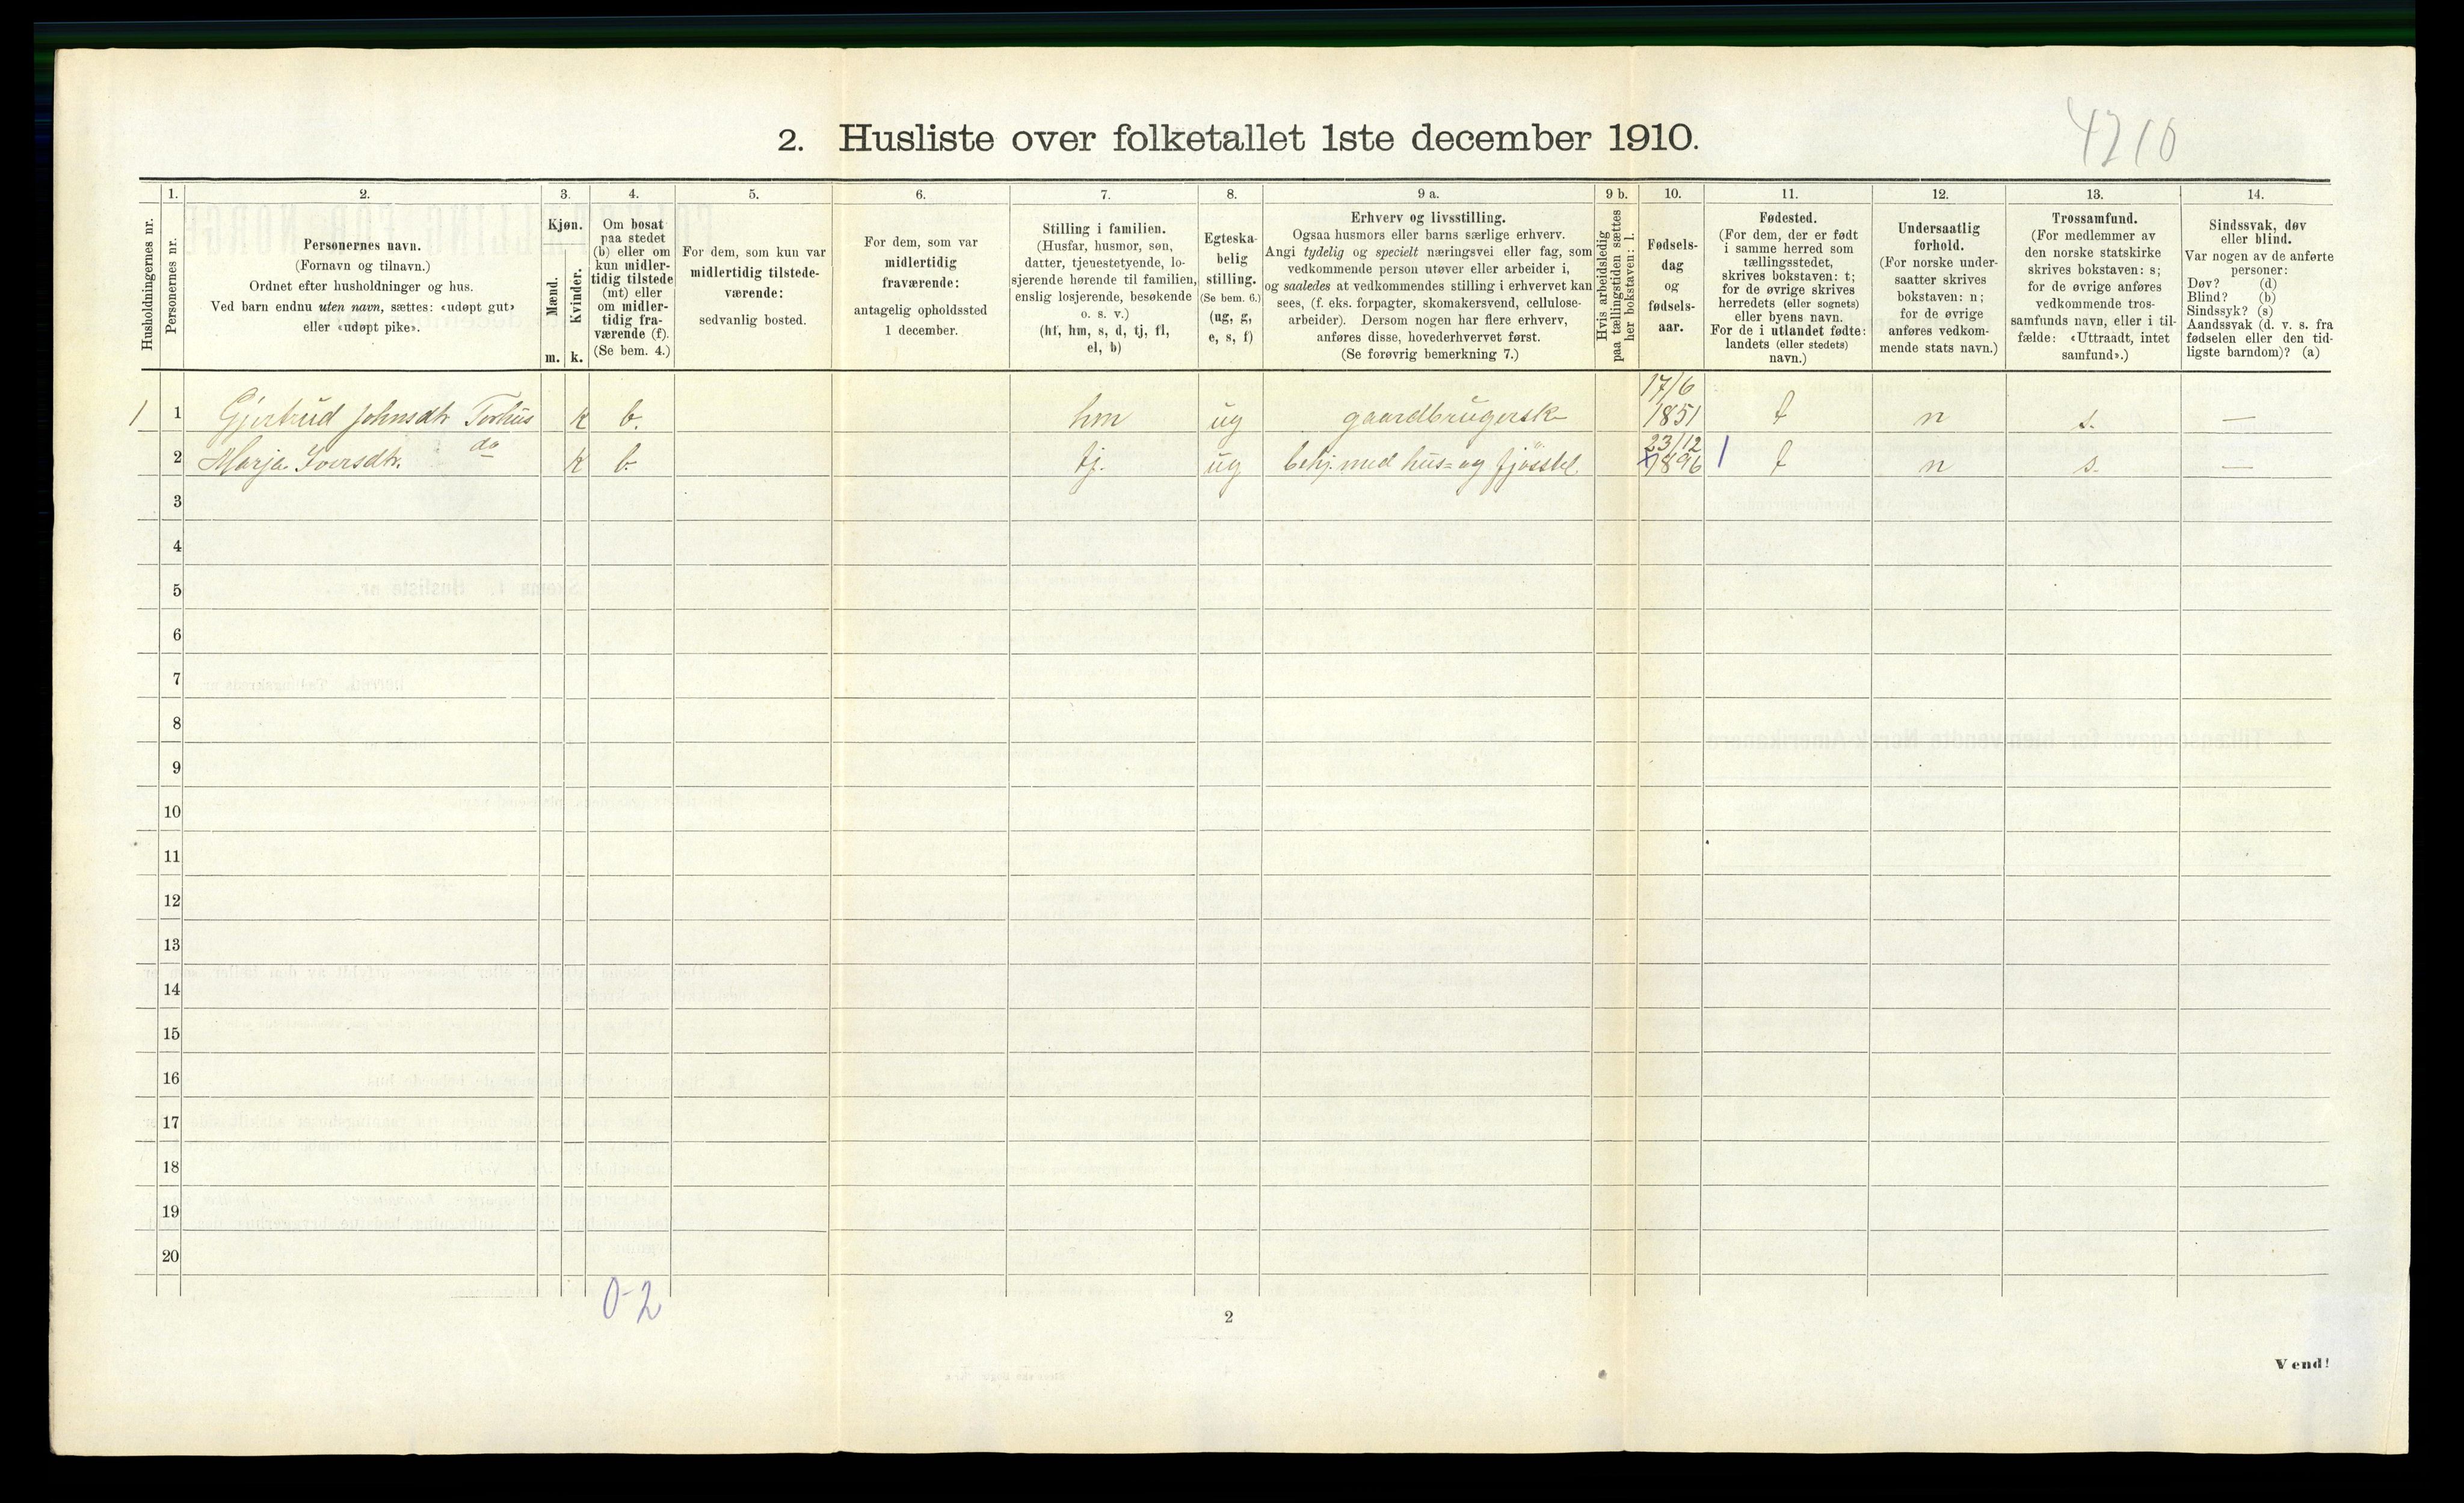 2. Husliste over folketallet 1ste december 1910.
4210
Husholdningernes nr.
1.
Personernes nr.
2.
Personernes navn.
(Fornavn og tilnavn.)
Ordnet efter husholdninger og hus.
Ved barn endnu uten navn, sættes: «udøpt gut»
eller «udøpt pike».
3.
Kjøn.
Mænd.
Kvinder.
m. k.
4.
Om bosat
paa stedet
(b) eller om
kun midler-
tidig tilstede
(mt) eller
om midler-
tidig fra-
værende (f).
(Se bem. 4.)
5.
For dem, som kun var
midlertidig tilstede-
værende:
sedvanlig bosted.
6.
For dem, som var
midlertidig
fraværende:
antagelig opholdssted
1 december.
7.
Stilling i familien.
(Husfar, husmor, søn,
datter, tjenestetyende, lo-
sjerende hørende til familien,
enslig losjerende, besøkende
o. s. v.)
(hf, hm, s, d, tj, fl,
el, b)
8.
Egteska-
belig
stilling.
(Se bem. 6.)
(ug, g,
e, s, f)
9 a.
Erhverv og livsstilling.
Ogsaa husmors eller barns særlige erhverv.
Angi tydelig og specielt næringsvei eller fag, som
vedkommende person utøver eller arbeider i,
og saaledes at vedkommendes stilling i erhvervet kan
sees, (f. eks. forpagter, skomakersvend, cellulose-
arbeider). Dersom nogen har flere erhverv,
anføres disse, hovederhvervet først.
(Se forøvrig bemerkning 7.)
9 b.
Hvis arbeidsledig
paa tællingstiden sættes
her bokstaven: l.
10.
Fødsels-
dag
og
fødsels-
aar.
11.
Fødested.
(For dem, der er født
i samme herred som
tællingsstedet,
skrives bokstaven: t;
for de øvrige skrives
herredets (eller sognets)
eller byens navn.
For de i utlandet fødte:
landets (eller stedets)
navn.)
12.
Undersaatlig
forhold.
(For norske under-
saatter skrives
bokstaven: n;
for de øvrige
anføres vedkom-
mende stats navn.)
13.
Trossamfund.
(For medlemmer av
den norske statskirke
skrives bokstaven: s;
for de øvrige anføres
vedkommende tros-
samfunds navn, eller i til-
fælde: «Uttraadt, intet
samfund».)
14.
Sindssvak, døv
eller blind.
Var nogen av de anførte
personer:
Døv? (d)
Blind? (b)
Sindssyk? (s)
Aandssvak (d. v. s. fra
fødselen eller den tid-
ligste barndom)? (a)
1 1 Gjertrud Johnsdtr Torhüs k b. hm ug gaardbrugersk 17/6 1851 t n s. —
2 Marja Iversdtr. do k b. tj. ug behj. med hüs= og fjösstel. 23/12 1896 1 t n s. —
3
4
5
6
7
8
9
10
11
12
13
14
15
16
17
18
19
20
0-2
2
Vend!